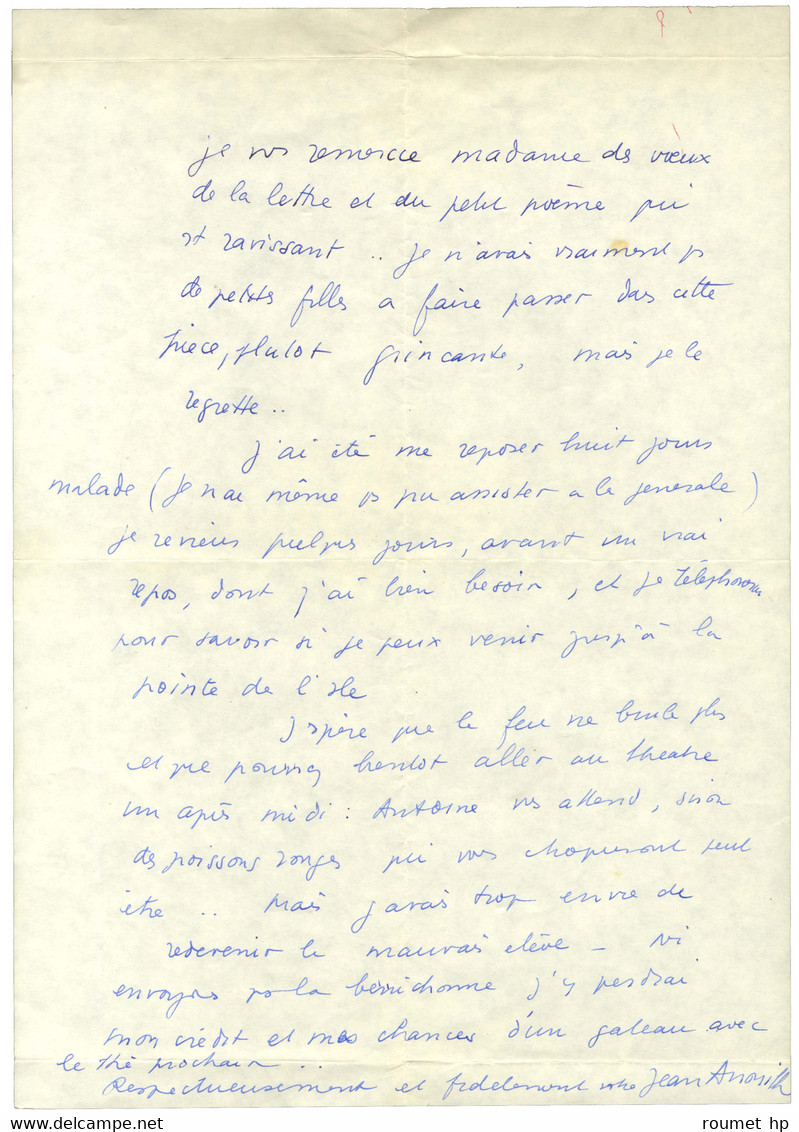 je vs remercie madame des vœux
de la lettre et du petit poème qui
st ravissant .. je n'avais vraiment ps
de petites filles a faire passer das cette
pièce, plutot grincante, mais je le
regrette ..
J'ai été me reposer huit jours
malade (je n'ai même ps pu assister a la generale)
je reviens quelques jours, avant un vrai
repos, dont j'ai bien besoin, et je téléphonerai
pour savoir si je peux venir jusqu'à la
pointe de l'isle
J'espère que le feu ne brule plus
et que pourrez bientot aller au theatre
un après midi : Antoine vs attend, sinon
des poissons rouges qui vous choqueront peut
être .. Mais j'avais trop envie de
redevenir le mauvais elève —
envoyons ps la berrichonne j'y perdrai
mon crédit et mes chances d'un gateau avec
le thé prochain ..
Respectueusement et fidelement votre Jean Anouilh
roumet hp